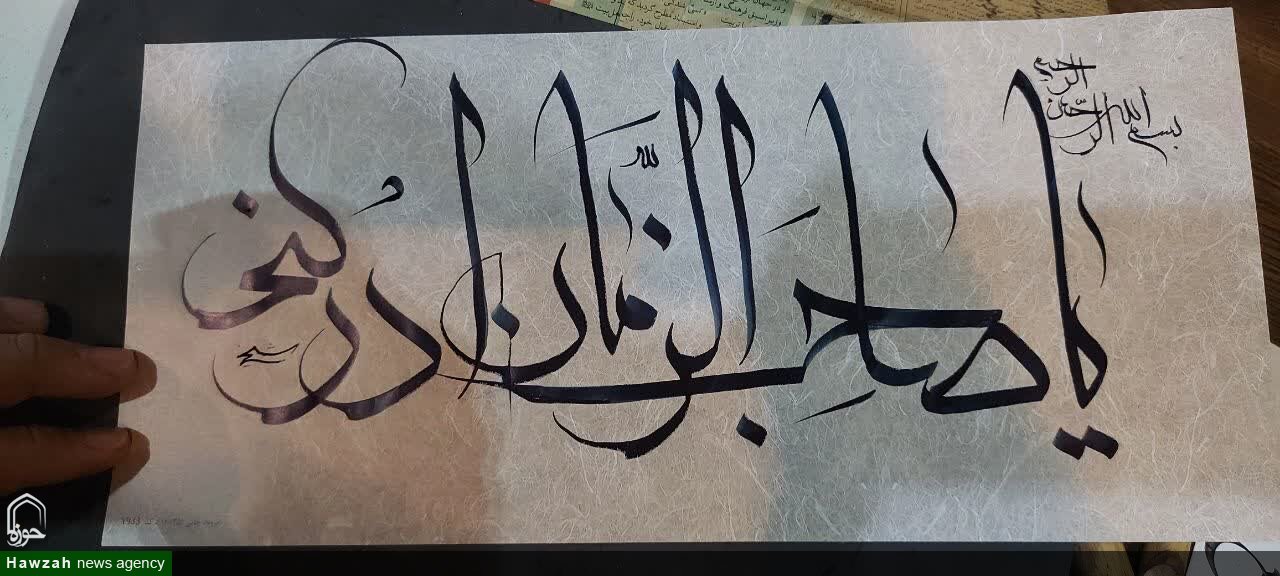 بسم الله الرحمن الرحیم
یا صاحب الزمان ادرکنی
لله
حوزه
Hawzah news agency